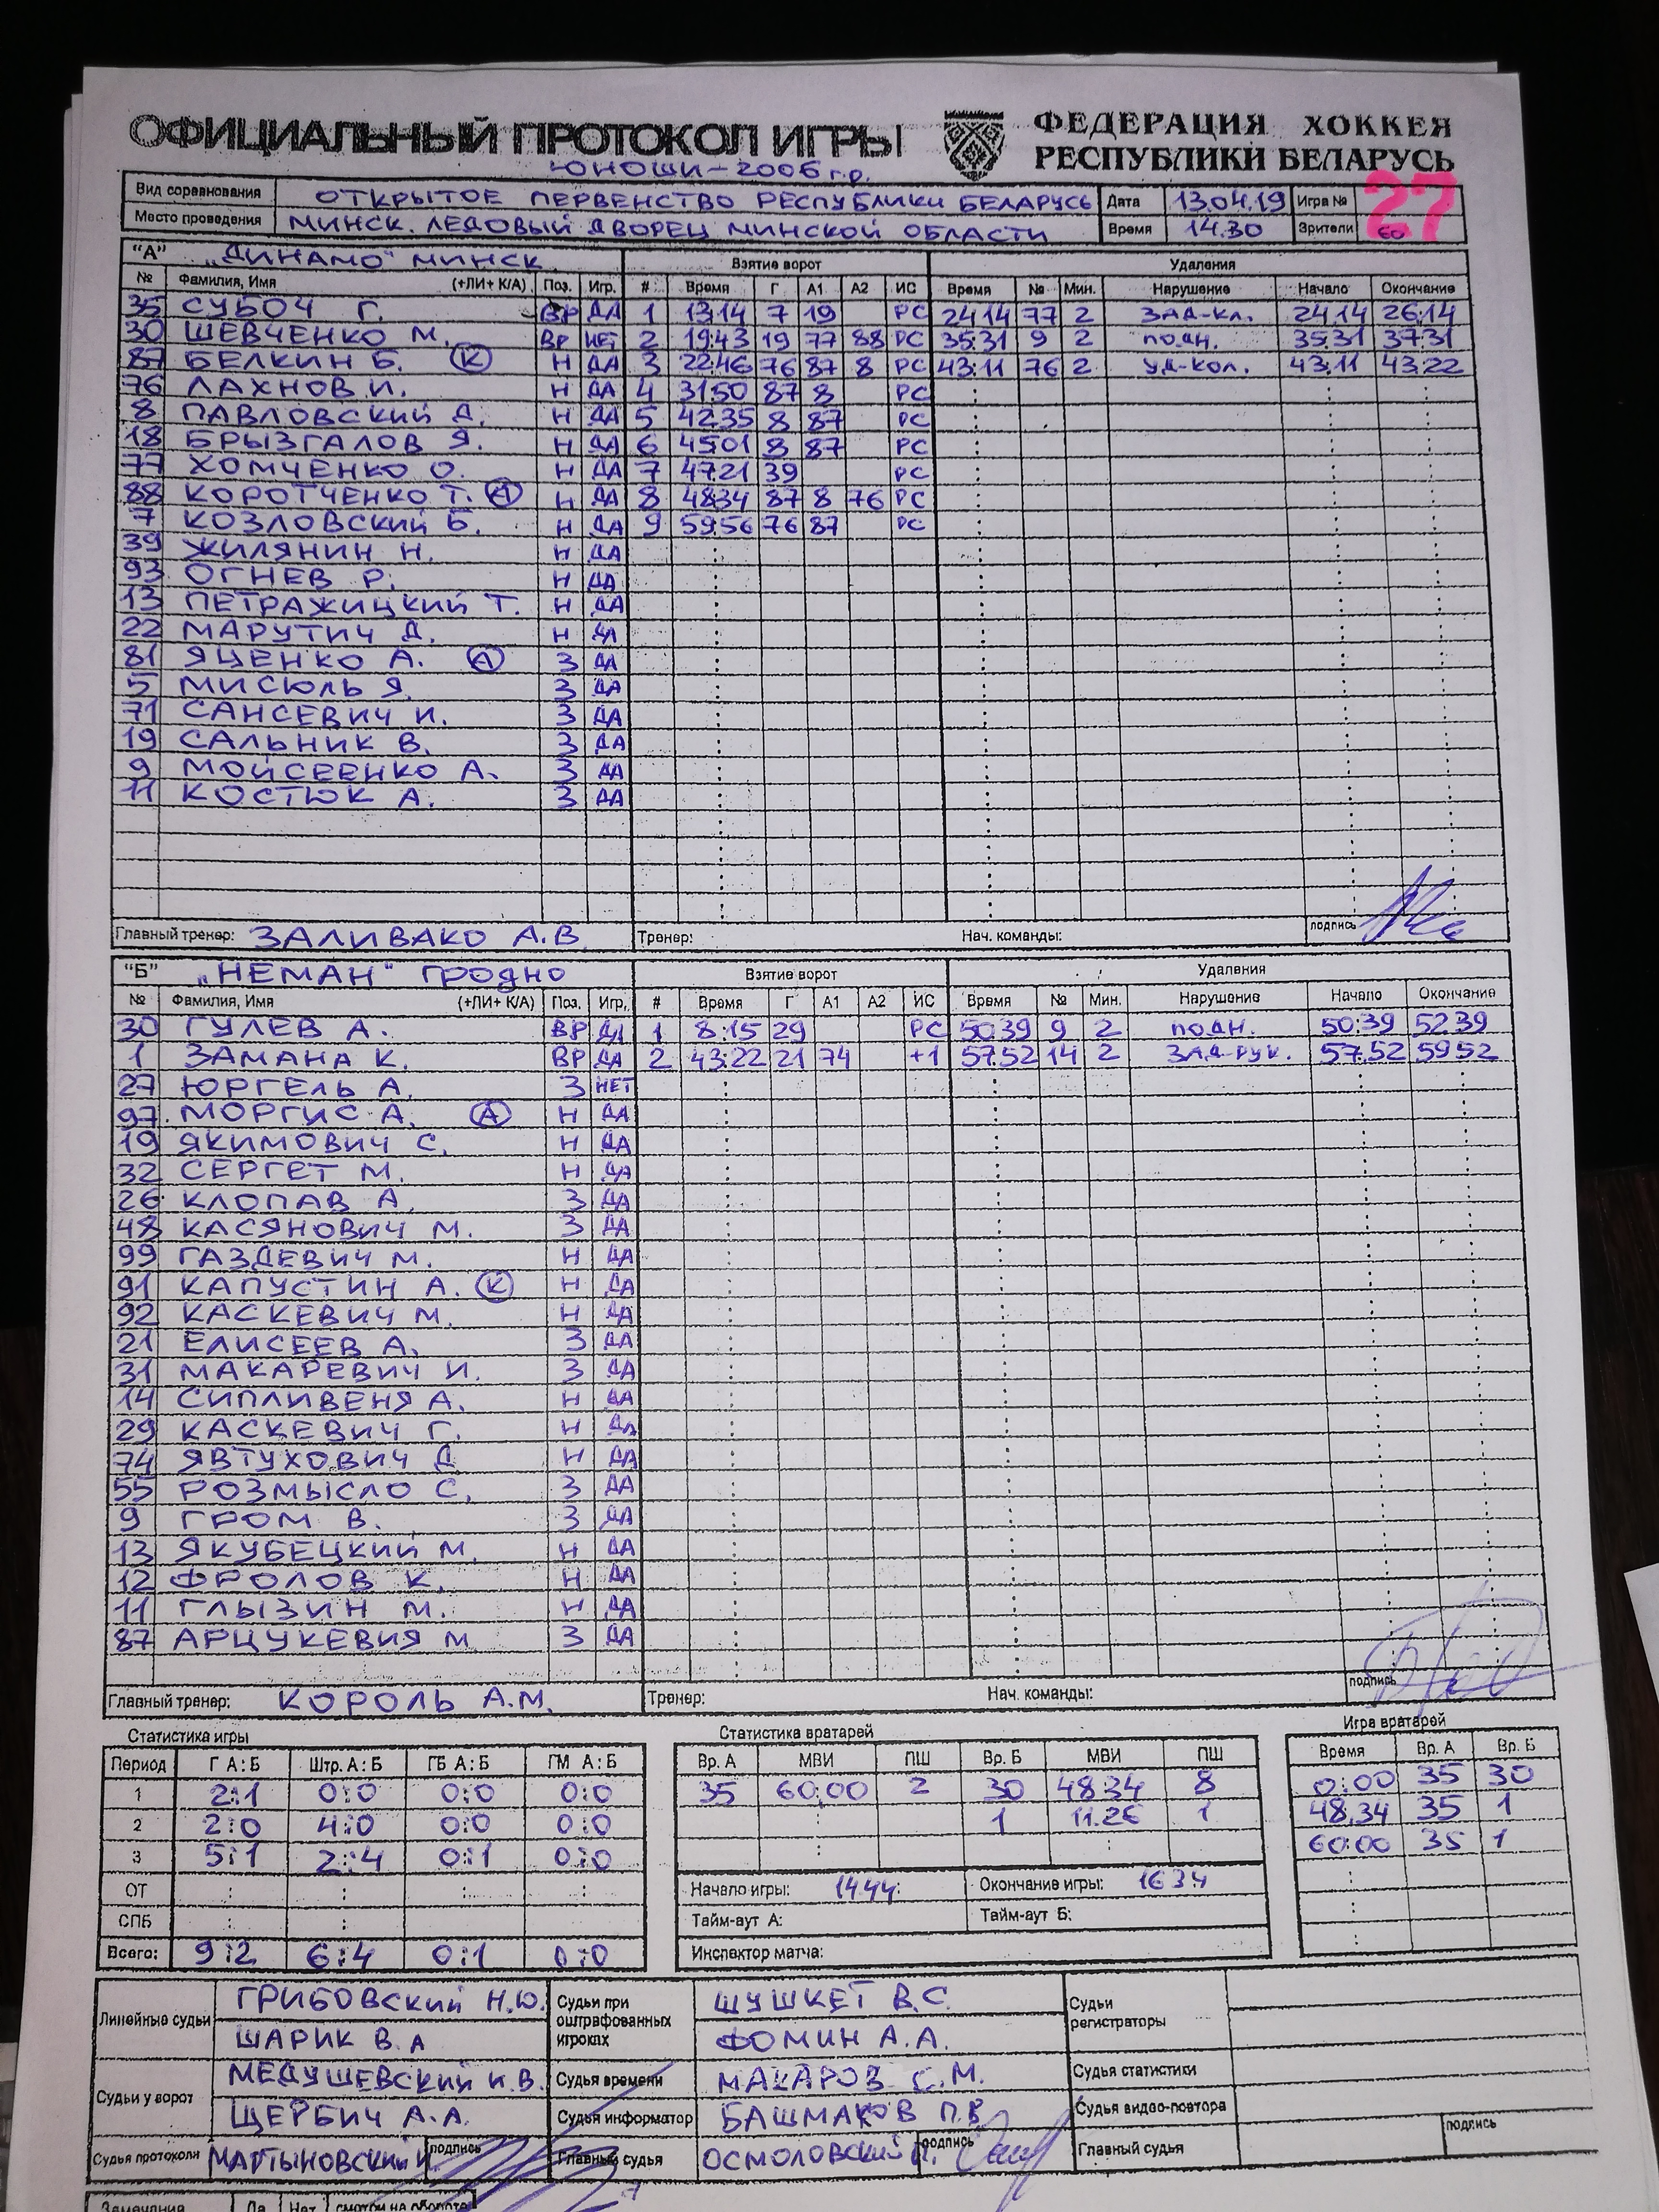 ОФИЦИАЛЬНЫЙ ПРОТОКОЛ ИГРЫ ФЕДЕРАЦИЯ ХОККЕЯ РЕСПУБЛИКИ БЕЛАРУСЬ
ЮНОШИ-2006 г.р.
Вид соревнования ОТКРЫТОЕ ПЕРВЕНСТВО РЕСПУБЛИКИ БЕЛАРУСЬ Дата 13.04.19 Игра № 27
Место проведения МИНСК. ЛЕДОВЫЙ ДВОРЕЦ МИНСКОЙ ОБЛАСТИ Время 14.30 Зрители 60
"А" „ДИНАМО" МИНСК Взятие ворот Удаления
№ Фамилия, Имя (+ЛИ+ К/А) Поз. Игр. # Время Г А1 А2 ИС Время № Мин. Нарушение Начало Окончание
35 СУБОЧ Г. ВР ДА 1 13:14 7 19 РС 24:14 77 2 ЗАД-КЛ. 24:14 26:14
30 ШЕВЧЕНКО М. ВР НЕТ 2 19:43 19 77 88 РС 35:31 9 2 ПОДН. 35:31 37:31
87 БЕЛКИН Б. (К) Н ДА 3 22:46 76 87 8 РС 43:11 76 2 УД-КОЛ. 43:11 43:22
76 ЛАХНОВ И. Н ДА 4 31:50 87 8 РС
8 ПАВЛОВСКИЙ Д. Н ДА 5 42:35 8 87 РС
18 БРЫЗГАЛОВ Я. Н ДА 6 45:01 8 87 РС
77 ХОМЧЕНКО О. Н ДА 7 47:21 39 РС
88 КОРОТЧЕНКО Т. (А) Н ДА 8 48:34 87 8 76 РС
7 КОЗЛОВСКИЙ Б. Н ДА 9 59:56 76 87 РС
39 ЖИЛЯНИН Н. Н ДА
93 ОГНЕВ Р. Н ДА
13 ПЕТРАЖИЦКИЙ Т. Н ДА
22 МАРУТИЧ Д. Н ДА
81 ЯЦЕНКО А. (А) З ДА
5 МИСЮЛЬ Я. З ДА
71 САНСЕВИЧ И. З ДА
19 САЛЬНИК В. З ДА
9 МОЙСЕЕНКО А. З ДА
11 КОСТЮК А. З ДА
Главный тренер: ЗАЛИВАКО А.В. Тренер: Нач. команды: подпись
"Б" „НЕМАН" ГРОДНО Взятие ворот Удаления
№ Фамилия, Имя (+ЛИ+ К/А) Поз. Игр. # Время Г А1 А2 ИС Время № Мин. Нарушение Начало Окончание
30 ГУЛЕВ А. ВР ДА 1 8:15 29 РС 50:39 9 2 ПОДН. 50:39 52:39
1 ЗАМАНА К. ВР ДА 2 43:22 21 74 +1 57:52 14 2 ЗАД-РУК. 57:52 59:52
27 ЮРГЕЛЬ А. З НЕТ
97 МОРГИС А. (А) Н ДА
19 ЯКИМОВИЧ С. Н ДА
32 СЕРГЕТ М. Н ДА
26 КЛОПАВ А. З ДА
48 КАСЯНОВИЧ М. З ДА
99 ГАЗДЕВИЧ М. Н ДА
91 КАПУСТИН А. (К) Н ДА
92 КАСКЕВИЧ М. Н ДА
21 ЕЛИСЕЕВ А. З ДА
31 МАКАРЕВИЧ И. З ДА
14 СИПЛИВЕНЯ А. Н ДА
29 КАСКЕВИЧ Г. Н ДА
74 ЯВТУХОВИЧ Д Н ДА
55 РОЗМЫСЛО С. З ДА
9 ГРОМ В. З ДА
13 ЯКУБЕЦКИЙ М. Н ДА
12 ФРОЛОВ К. Н ДА
11 ГЛЫЗИН М. Н ДА
87 АРЦУКЕВИЯ М З ДА
Главный тренер: КОРОЛЬ А.М. Тренер: Нач. команды: подпись
Статистика игры Статистика вратарей Игра вратарей
Период Г А:Б Штр. А:Б ГБ А:Б ГМ А:Б Вр. А МВИ ПШ Вр. Б МВИ ПШ Время Вр. А Вр. Б
1 2:1 0:0 0:0 0:0 35 60:00 2 30 48:34 8 0:00 35 30
2 2:0 4:0 0:0 0:0 1 11:26 1 48:34 35 1
3 5:1 2:4 0:1 0:0 60:00 35 1
ОТ Начало игры: 14:44 Окончание игры: 16 34
СПБ Тайм-аут А: Тайм-аут Б:
Всего: 9:2 6:4 0:1 0:0 Инспектор матча:
Линейные судьи ГРИБОВСКИЙ Н.Ю. Судьи при оштрафованных игроках ШУШКЕТ В.С. Судьи регистраторы
ШАРИК В.А ФОМИН А.А.
Судьи у ворот МЕДУШЕВСКИЙ И.В. Судья времени МАКАРОВ С.М. Судья статистики
ЩЕРБИЧ А.А. Судья информатор БАШМАКОВ П.В Судья видео-повтора
Судья протокола МАРТЫНОВСКИЙ подпись Главный судья ОСМОЛОВСКИЙ подпись Главный судья подпись
Замечания Да Нет смотри на обороте